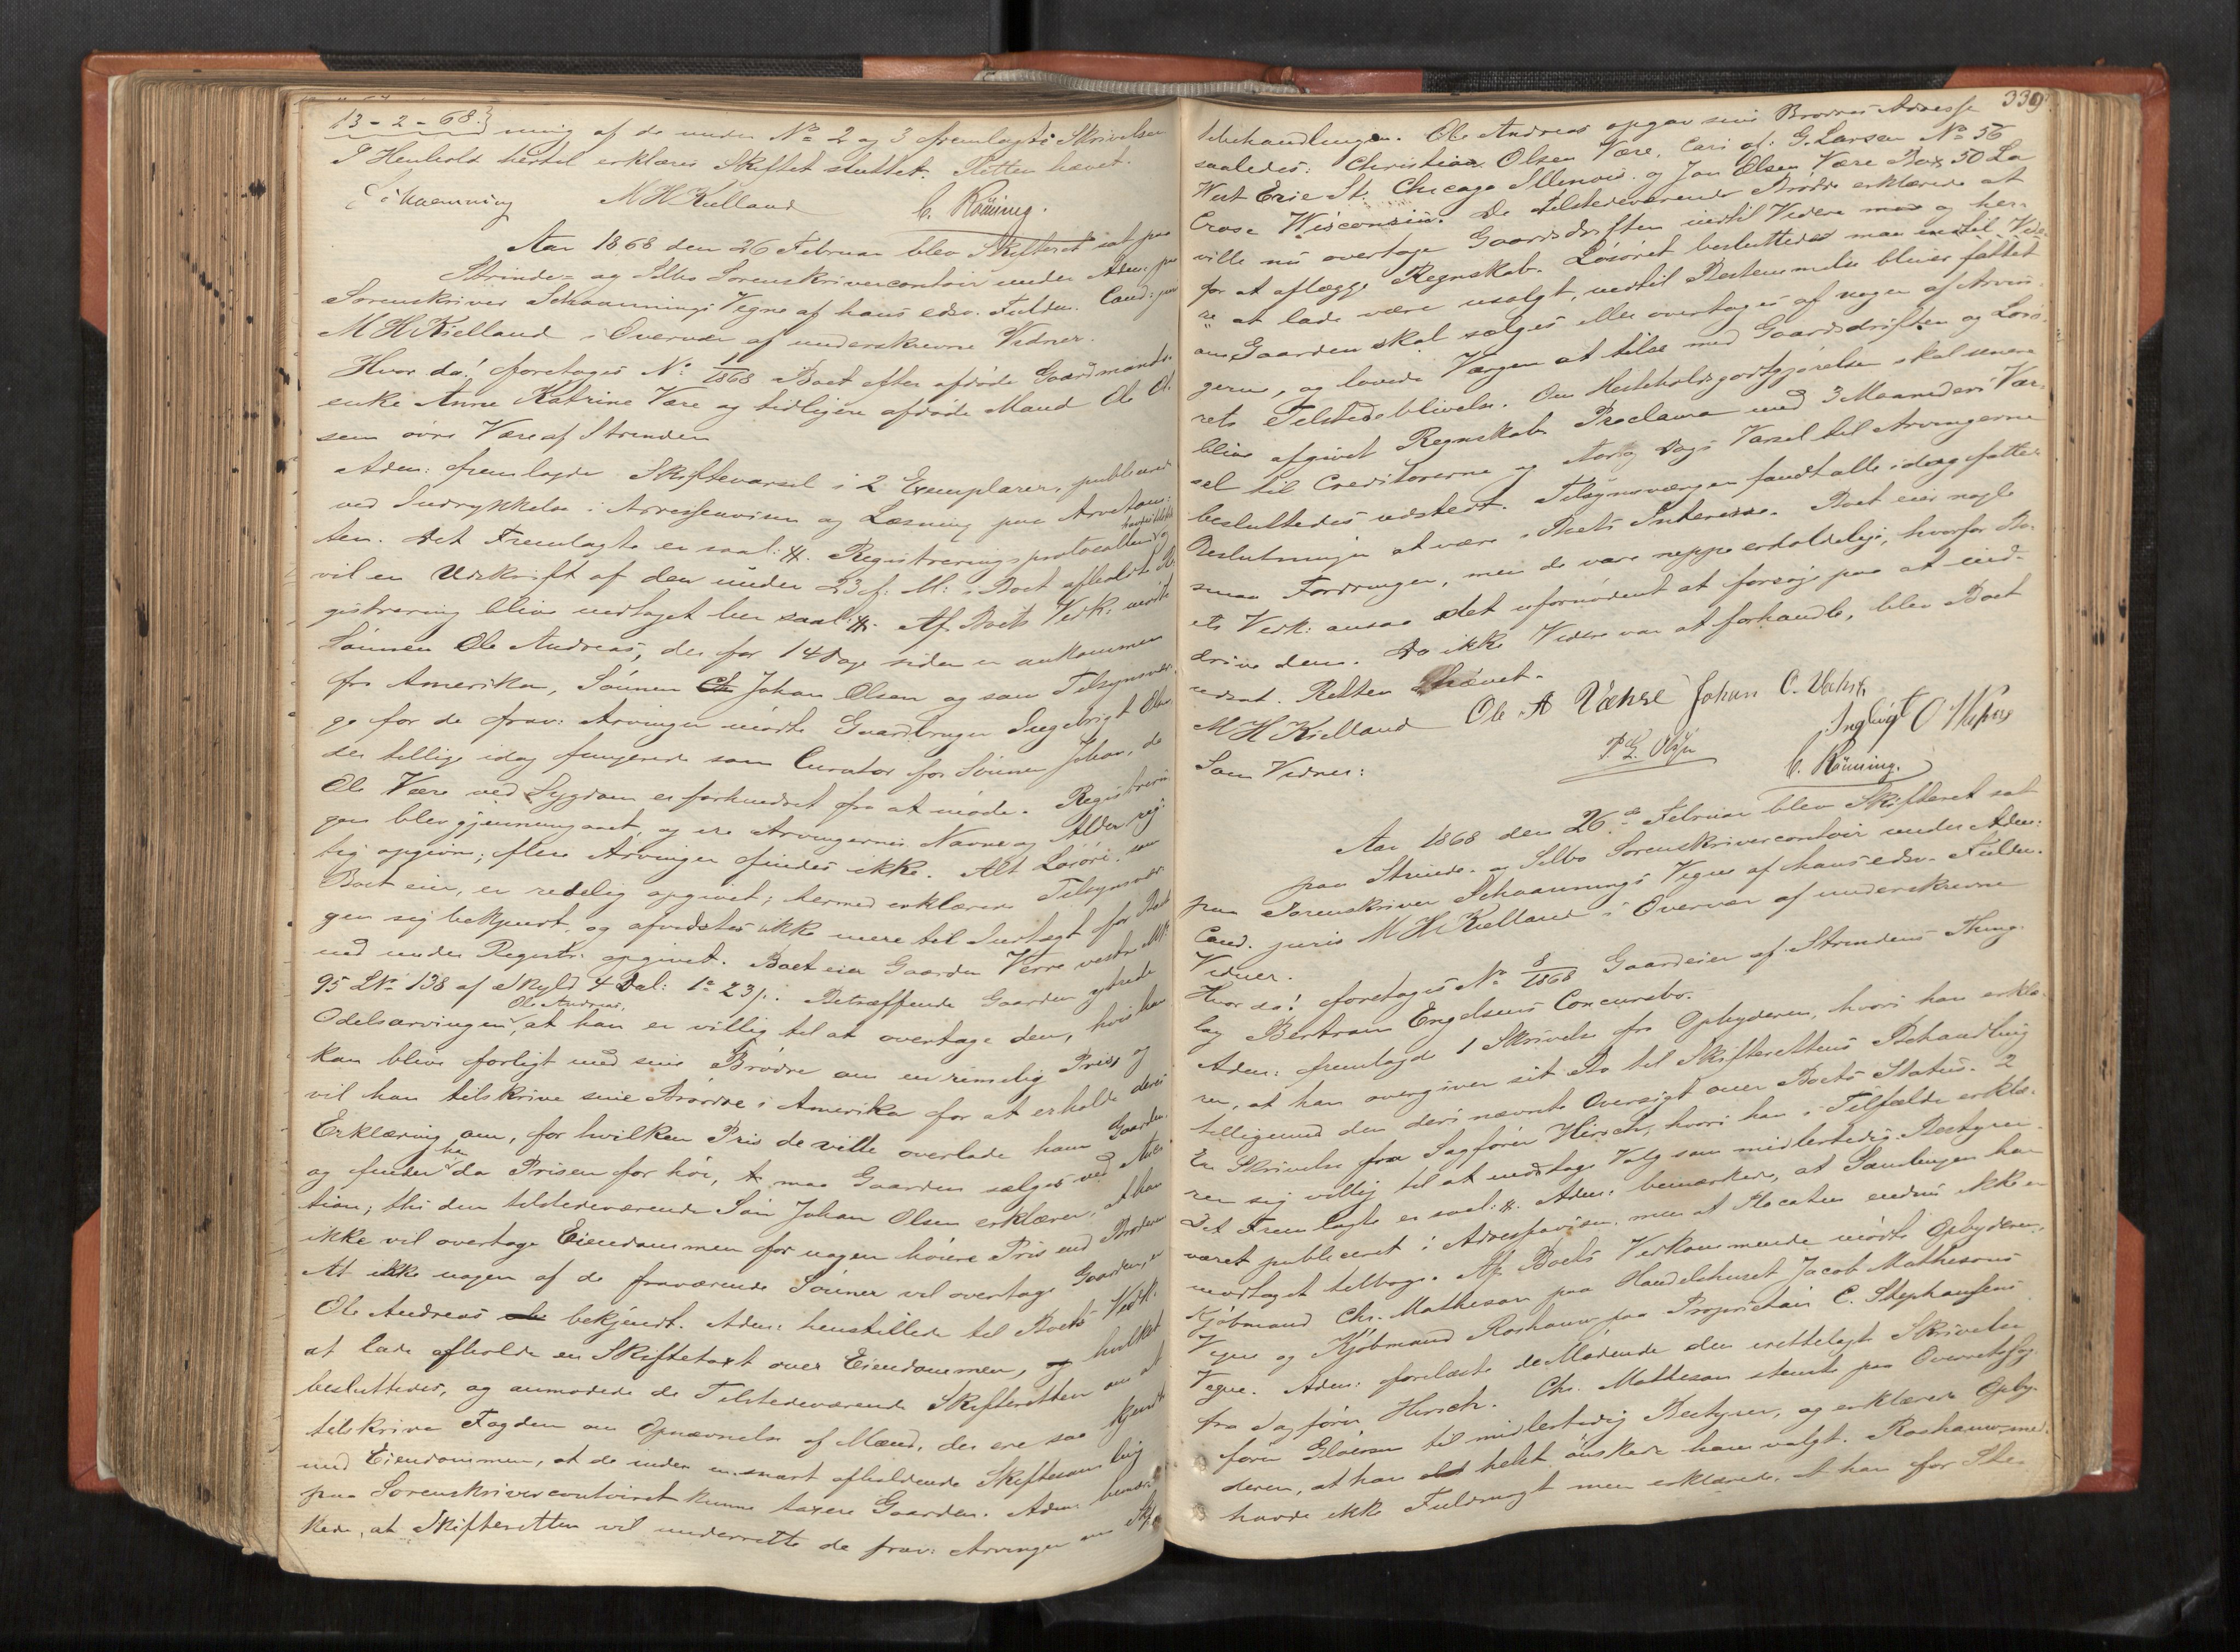 13-2-68.} ning af de under No 2 og 3 fremlagte Skrivelser
I Henhold hertil erklæres Skiftet sluttet. Retten hævet.
Schaanning M H Kielland C. Rönning.
Aar 1868 den 26 Februar blev Skifteret sat paa
Strinde- og Selbo Sorenskrivercontoir under Adm: paa
Sorenskriver Schaannings Vegne af hans edsv. Fuldm. Cand: juris
M H Kielland i Overvær af underskrevne Vidner.
Hvor da! foretoges No 1/1868 Boet efter afdöde Gaardmands-
enke Anne Katrine Være og tidligere afdöde Mand Ole Ol-
sen övre Være af Strinden
Adm: fremlagde Skiftevarsel i 2 Exemplarer, publiceret
ved Indrykkelse i Adresseavisen og Læsning paa Arvetom-
ten. Det Fremlagte er saal: #. Registreringsprotocollen
vil en Udskrift af den under 23 f: M: i Boet afholdt Re-
gistrering blive indtaget her saal: #. Af Boets Vedk: mödte
Sönnen Ole Andreas, der for 14 Dage siden er ankommen
fra Amerika, Sönnen Johan Olsen og som Tilsynsvær-
ge for de frav: Arvinger mödte Gaardbruger Ingebrigt Olsen
der tillige idag fungerede som Curator for Sönnen Johan, da
Ole Være ved Sygdom er forhindret fra at möde. Registrerin
gen blev gjennemgaaet, og ere Arvingernes Navne og Alder rig-
tig opgivne; flere Arvinger findes ikke. Alt Lösöre, som
Boet eier, er redelig opgivet; hermed erklærede Tilsynsvær-
gen sig bekjendt, og afvidstes ikke mere til Indtægt for Boet
end under Registr: opgivet. Boet eier Gaarden Verre vestre MN:
95 LNo 138 af Skyld 4 Dal: 1 23 /. Betræffende Gaarden ytrede
Odelsarvingen Ole Andreas, at han er villig til at overtage den, hvis han
kan blive forligt med sine Brödre om en rimelig Pris, og
vil han tilskrive sine Brödre i Amerika for at erholde deres
Erklæring om, for hvilken Pris de ville overlade ham Gaarden
og finder han da Prisen for höi, maa Gaarden sælges ved Auc-
tion; thi den tilstedeværende Sön Johan Olsen erklærer, at han
ikke vil overtage Eiendommen for nogen höiere Pris end Broderen
At ikke nogen af de fraværende Sönner vil overtage Gaarden, er
Ole Andreas bekjendt. Adm: henstillede til Boets Vedk:
at lade afholde en Skiftetaxt over Eiendommen, hvilket
besluttedes, og anmodede de Tilstedeværende Skifteretten om at
tilskrive Fogden om Opnævnelse af Mænd, der ere saa kjendte
med Eiendommen, at de under en snart afholdende Skiftesamling
paa Sorenskrivercontoiret kunne taxere Gaarden. Adm: bemær-
kede, at Skifteretten vil underrette de frav: Arvinger om Skif-
339
tebehandlingen. Ole Andreas opgav sine Brödres Adresse
saaledes: Christian Olsen Være, Cari af: G. Larsen No 56
West Erie St: Chicago Illinois og Jon Olsen Være Box 50 La
Crose Wisconsin. De tilstedeværende Brödre erklærede at
ville nu overtage Gaardsdriften indtil Videre mod og her-
for at aflægge Regnskab. Lösöret besluttedes man indtil Vide-
re at lade være usolgt, indtil Bestemmelse bliver fattet
om Gaarden skal sælges eller overtages af nogen af Arvin-
gerne, og lovede Værgen at tilse med Gaardsdriften og Lösö-
rets Tilstedeblivelse. Om Hesteholdsgodtgjörelse skal senere
blive afgivet Regnskab. Proclama med 3 Maaneders Var-
sel til Creditorerne og Aar og Dags Varsel til Arvingerne
besluttedes udstedt. Tilsynsværgen fandt alle idag fattede
Beslutninger at være i Boets Interesse. Boet eier nogle
smaa Fordringer, men de vare neppe erholdelige, hvorfor Bo-
ets Vedk: ansaa det ufornödent at forsöge paa at ind-
drive dem. Da ikke Videre var at forhandle, blev Boet
udsat. Retten hævet.
M H Kielland Ole A Væhre Johan O. Væhre
Som Vidner: C. Rönning.
Aar 1868 den 26de Februar blev Skifteret sat
paa Strinde- og Selbo Sorenskrivercontoir under Adm:
paa Sorenskriver Schaannings Vegne af hans edsv. Fuldm.
Cand. juris M H Kielland i Overvær af underskrevne
Vidner.
Hvor da! foretoges No 8/1868 Gaardeier af Strindens Thing-
lag Bertram Engelsens Concursbo.
Adm: fremlagde 1 Skrivelse fra Opbyderen, hvori han erklæ-
rer, at han overgiver sit Bo til Skifterettens Behandling
tilligemed den deri nævnte Oversigt over Boets Status. 2
En Skrivelse fra Sagförer Hirsch, hvori han i Tilfælde erklæ-
rer sig villig til at modtage Valg som midlertidig Bestyrer.
Det Fremlagte er saal: #. Adm: bemærkede, at Samlingen har
været publiceret i Adresseavisen, men at Placaten endnu ikke er
modtaget tilbage. Af Boets Vedkommende mödte Opbyderen,
Kjöbmand Chr. Matheson paa Handelshuset Jacob Mathesons
Vegne og Kjöbmand Roshauw paa Proprietair C. Stephansens
Vegne. Adm: forelæste de Mödende den irettelagte Skrivelse
fra Sagförer Hirsch. Chr. Matheson stemte paa Overretssag-
förer til midlertidig Bestyrer, og erklærede Opby-
deren, at han helst önskede ham valgt. Roshauw med-
havde ikke Fuldmagt men erklærede, at han for Ste-